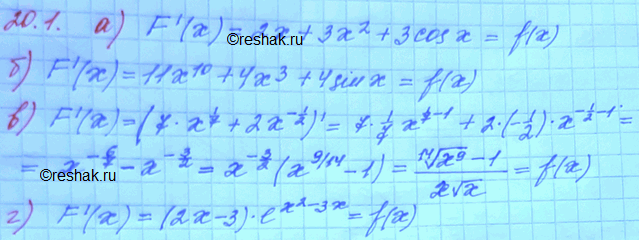 20.1. а) F'(x) = 2x + 3x² + 3cos x = f(x)
©reshak.ru
б) F'(x) = 11x¹⁰ + 4x³ + 4sin x = f(x)
в) F'(x) = (7 · x^(1/7) + 2x^(-1/2))' = 7 · 1/7 x^(1/7-1) + 2 · (-1/2) · x^(-1/2-1) =
= x^(-6/7) - x^(-3/2) = x^(-3/2) (x^(9/14) - 1) = (¹⁴√x⁹ - 1)/(x√x) = f(x)
©reshak.ru ©reshak.ru
г) F'(x) = (2x-3) · e^(x²-3x) = f(x)